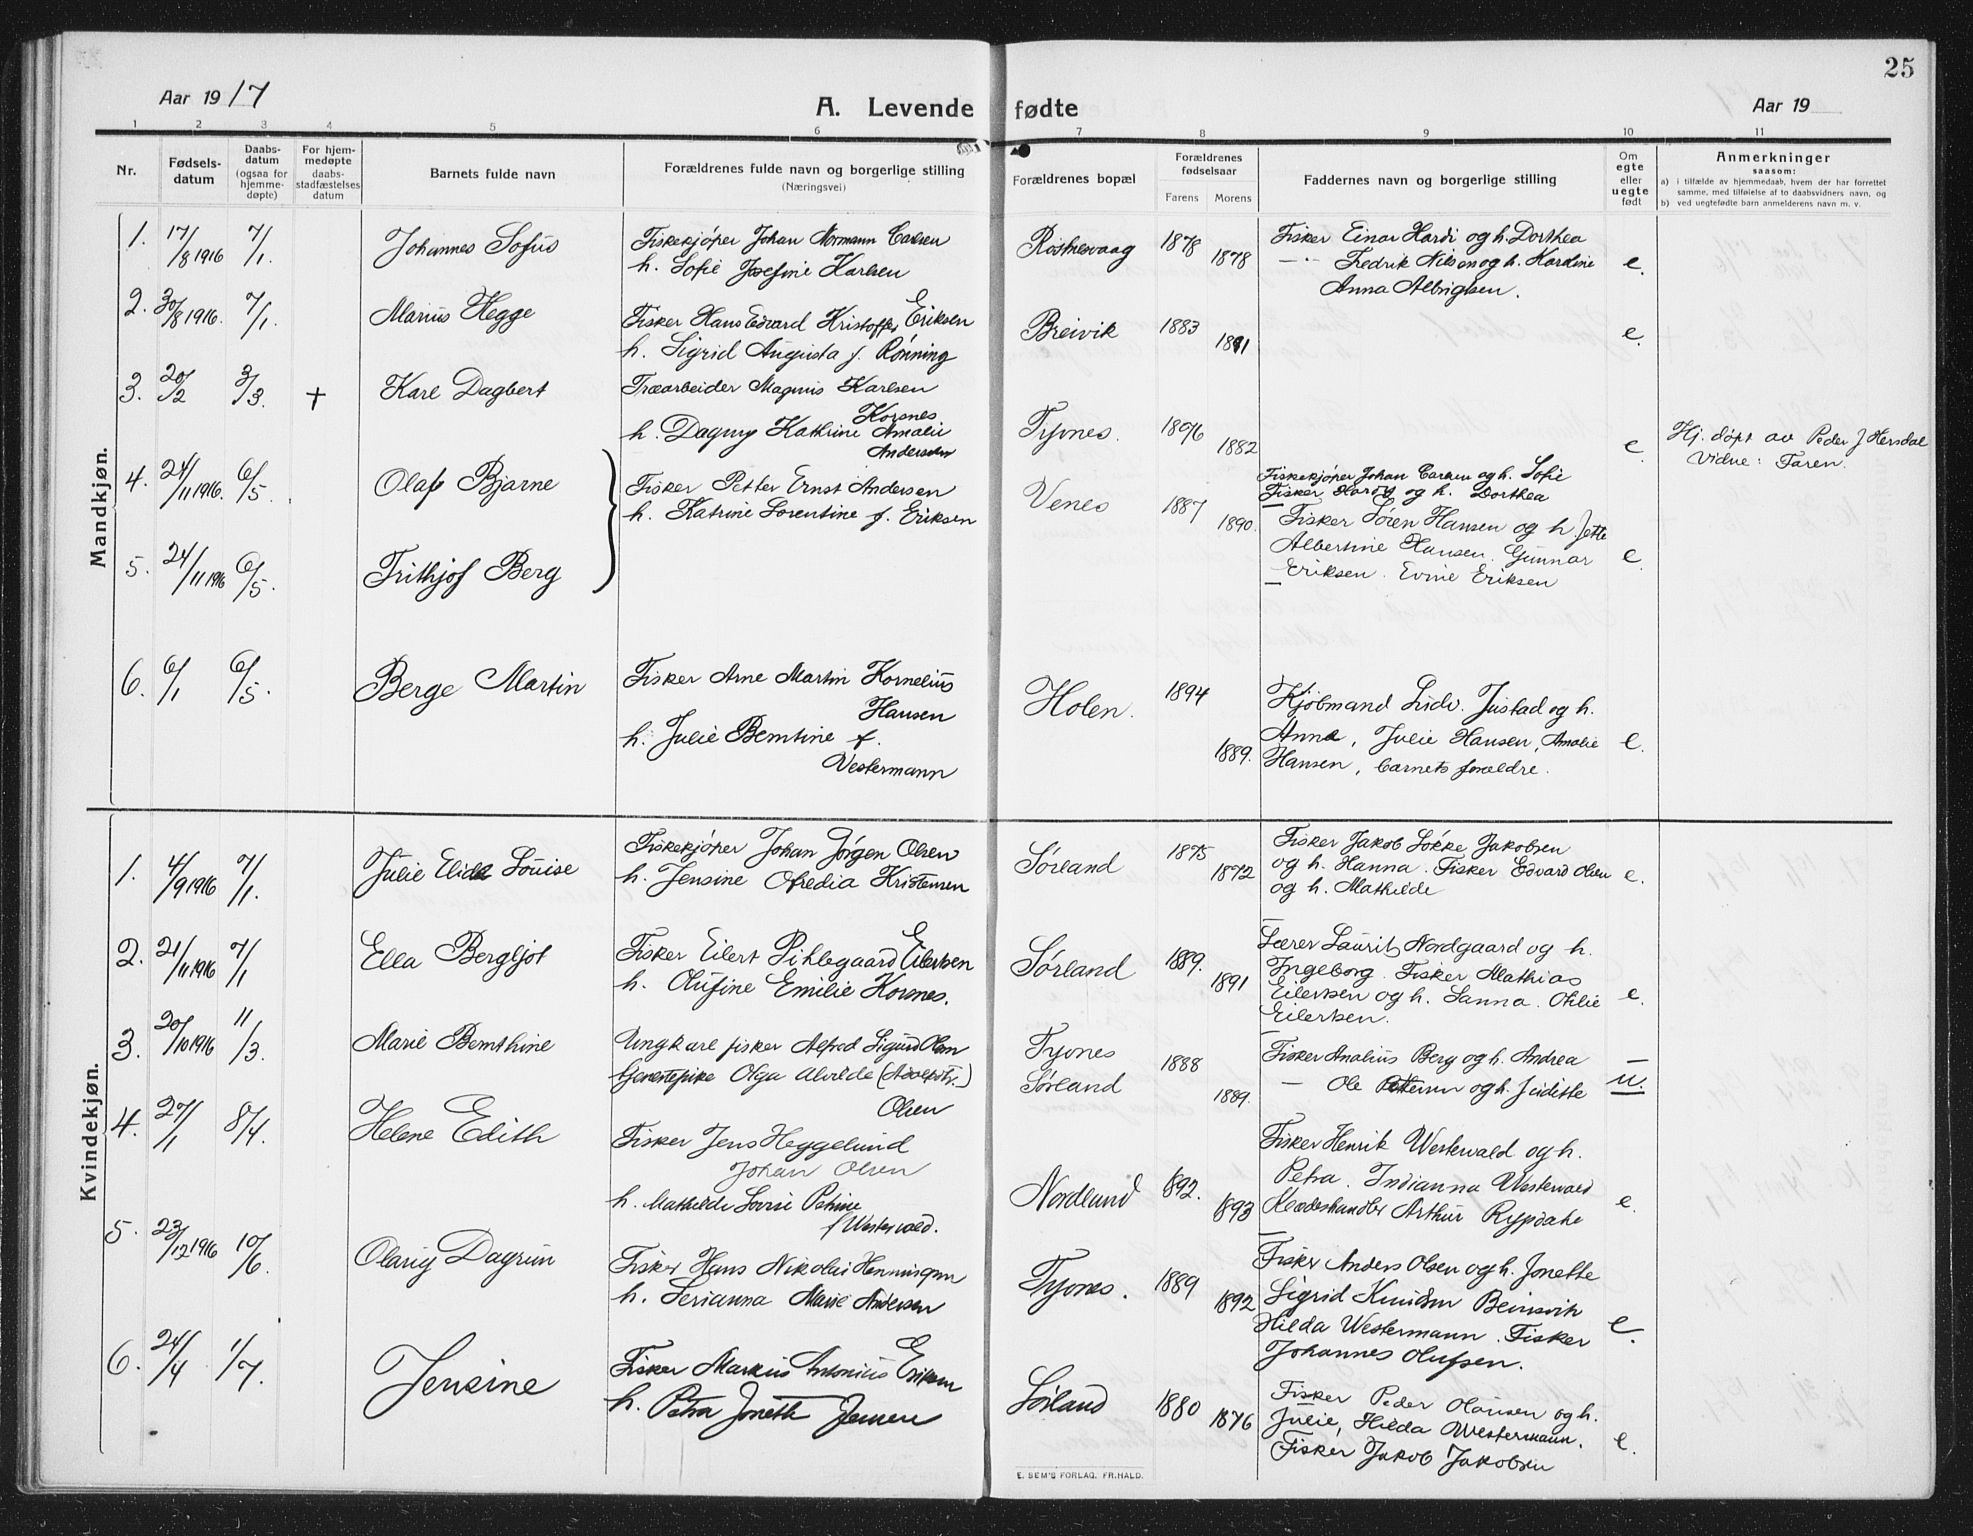 25
Aar 1917
A. Levende fødte
Aar 19
1 2 3 4 5 6 7 8 9 10 11
Nr.
Fødsels-
datum
Daabs-
datum
(ogsaa for
hjemme-
døpte)
For hjem-
medøpte
daabs-
stadfæstelses
datum
Barnets fulde navn
Forældrenes fulde navn og borgerlige stilling
(Næringsvei)
Forældrenes bopæl
Forældrenes
fødselsaar
Farens Morens
Faddernes navn og borgerlige stilling
Om
egte
eller
uegte
født
Anmerkninger
saasom:
a) i tilfælde av hjemmedaab, hvem der har forrettet
samme, med tilføielse af to daabsvidners navn, og
b) ved uegtefødte barn anmelderens navn m. v.
Mandkjøn.
1. 17/8 1916 7/1. Johannes Sofus
Fiskekjøper Johan Normann Carlsen
h. Sofie Josefine Karlsen
Røstnesvaag 1878 1878
Fisker Einar Hardi og h. Dorthea
— " — Fredrik Nilsen og h. Kardine
Anna Albrigtsen.
e.
2. 30/8 1916. 7/1. Marius Hegge
Fisker Hans Edvard Kristoffer Eriksen
h. Sigrid Augusta f. Rønning
Breivik 1883 1891
e.
3. 20/2 3/3. + Karl Dagbert
Træarbeider Magnus Karlsen
Korsnes
h. Dagny Kathrine Amalie
Andersen
Tyvnes. 1896 1882
e.
Hj. døpt av Peder J Hersdal
Vidne: Faren.
4. 24/11 1916. 6/5. Olaf Bjarne
Fisker Petter Ernst Andersen
h. Katrine Lorentine f. Eriksen
Venes 1887 1890.
Fiskekjøper Johan Carlsen og h. Sofie
Fisker Hardy og h. Dorthea
Fisker Søren Hansen og h. Jette
Albertine Hansen. Gunnar
Eriksen. Evine Eriksen
e.
5. 24/11 1916 6/5. Frithjof Berg
6. 6/1 6/5. Berge Martin
Fisker Arne Martin Kornelius
Hansen
h. Julie Berntine f.
Westermann
Holen. 1894 1889.
Kjøbmand Ludv. Justad og h.
Anna, Julie Hansen, Amalie
Hansen, barnets forældre.
e.
Kvindekjøn.
1. 4/9 1916 7/1. Julie Elida Louise
Fiskekjøper Johan Jørgen Olsen
h. Jensine Ofredia Kristensen
Sørland 1875 1872
Fisker Jakob Løkke Jakobsen
og h. Hanna. Fisker Edvard Olsen
og h. Mathilde
e.
2. 21/11 1916 7/1 Ella Bergljot
Fisker Eilert Pihlegaard Eilertsen
h. Olufine Emilie Korsnes.
Sørland 1889. 1891
Lærer Laurits Nordgaard og h.
Ingeborg. Fisker Mathias
Eilertsen og h. Sanna. Otilie
Eilertsen.
e.
3. 20/10 1916 11/3. Marie Bernthine
Ungkarl fisker Alfred Sigurd Olsen
Tjenestepike Olga Alvilde (Adolfsdtr.)
Olsen
Tyvnes
Sørland
1888 1889.
Fisker Analius Berg og h. Andrea
— Ole Pettersen og h. Juditte
u.
4. 27/1 8/4. Helene Edith
Fisker Jens Heggelund
Johan Olsen
h. Mathilde Lovise Petrine
f Westerwald.
Nordland 1892. 1893
Fisker Henrik Westerwald og h.
Petra. Indianna Westerwald
Klædeshandler Arthur Rypdahl
e.
5. 23/12 1916 10/6. Olaug Dagrun
Fisker Hans Nikolai Henningsen
h. Serianna Marie Andersen
Tyvnes. 1889 1892
Fisker Anders Olsen og h. Jonette
Sigrid Knudsen Beinsvik
Hilda Westermann. Fisker
Johannes Olufsen.
e.
6. 24/4 1/7. Jensine
Fisker Markus Antonius Eriksen
h. Petra Jonette Jensen
Sørland 1880 1876
Fisker Peder Hansen og h.
Julie, Hilda Westermann.
Fisker Jakob Jakobsen
e.
E. SEM'S FORLAG, FR.HALD.